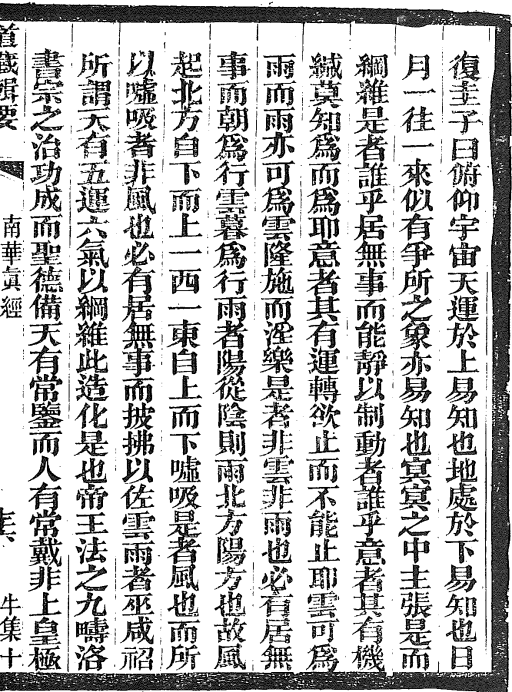 復圭子曰俯仰宇宙天運於上易知也地處於下易知也日
月一往一來似有爭所之象亦易知也冥冥之中主張是而
綱維是者誰乎居無事而能靜以制動者誰乎意者其有機
緘莫知爲而爲耶意者其有運轉欲止而不能止耶雲可爲
雨而雨亦可爲雲隆施而淫樂是者非雲非雨也必有居無
事而朝爲行雲暮爲行雨者陽從陰則雨北方陽方也故風
起北方自下而上一西一東自上而下噓吸是者風也而所
以噓吸者非風也必有居無事而披拂以佐雲雨者巫咸祒
所謂天有五運六氣以綱維此造化是也帝王法之九疇洛
書宗之治功成而聖德備天有常鑒而人有常戴非上皇極
道藏輯要 南華眞經 牛集十